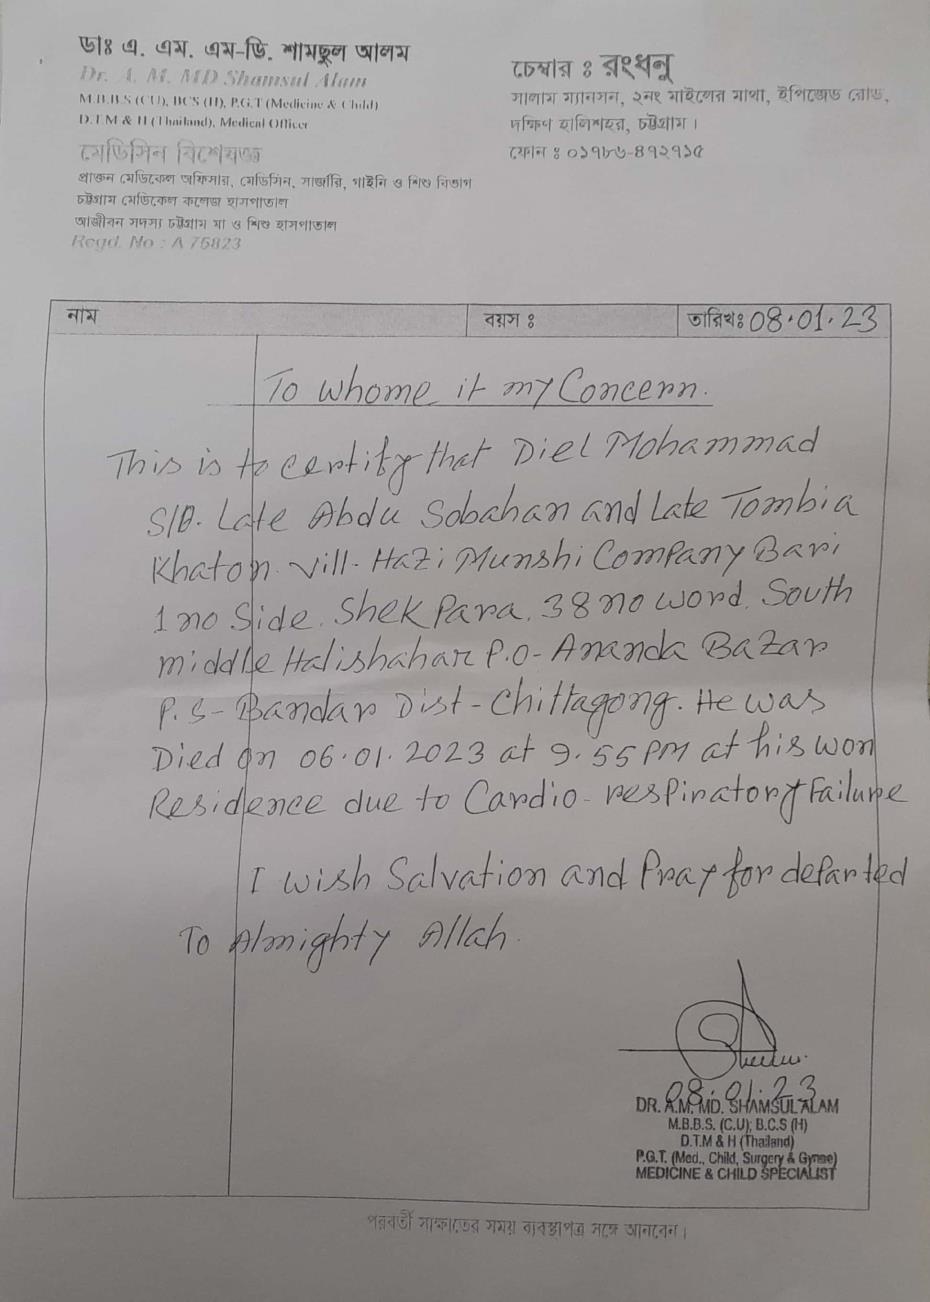 ডাঃ এ. এম. এম-ডি. শামছুল আলম
Dr. A. M. MD Shamsul Alam
M.B.B.S (CU), BCS (H), P.G.T (Medicine & Child)
D.T.M & H (Thailand), Medical Officer
মেডিসিন বিশেষজ্ঞ
প্রাক্তন মেডিকেল অফিসার, মেডিসিন, সার্জারি, গাইনি ও শিশু বিভাগ
চট্টগ্রাম মেডিকেল কলেজ হাসপাতাল
আজীবন সদস্য চট্টগ্রাম মা ও শিশু হাসপাতাল
Regd. No : A 75823
চেম্বার ঃ রংধনু
সালাম ম্যানসন, ২নং মাইলের মাথা, ইপিজেড রোড,
দক্ষিণ হালিশহর, চট্টগ্রাম।
ফোন ঃ ০১৭৮৬-৪৭২৭১৫
নাম বয়স ঃ তারিখঃ 08.01.23
To Whome it my Concern.
This is to certify that Diel Mohammad
S/O. Late Abdu Sobahan and Late Tombia
Khaton. Vill- Hazi Munshi Company Bari
1 no Side. Shek Para. 38 no word. South
middle Halishahar P.O- Ananda Bazar
P.S- Bandar Dist- Chittagong. He was
Died on 06.01.2023 at 9.55 PM at his won
Residence due to Cardio-respiratory Failure
I wish Salvation and Pray for departed
To Almighty Allah.
08.01.23
DR. A.M. MD. SHAMSUL ALAM
M.B.B.S. (C.U); B.C.S (H)
D.T.M & H (Thailand)
P.G.T. (Med., Child, Surgery & Gynae)
MEDICINE & CHILD SPECIALIST
পরবর্তী সাক্ষাতের সময় ব্যবস্থাপত্র সঙ্গে আনবেন।